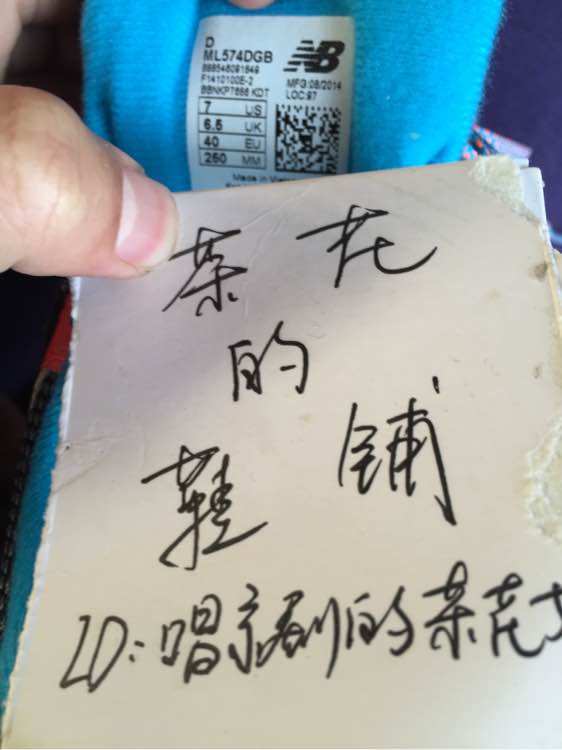 D
ML574DGB
NB
F1410100E-2
MFG:08/2014
LOC:97
7 US
6.5 UK
40 EU
250 MM
Made in
茶花
的
鞋铺
ID:唱京剧的茶花